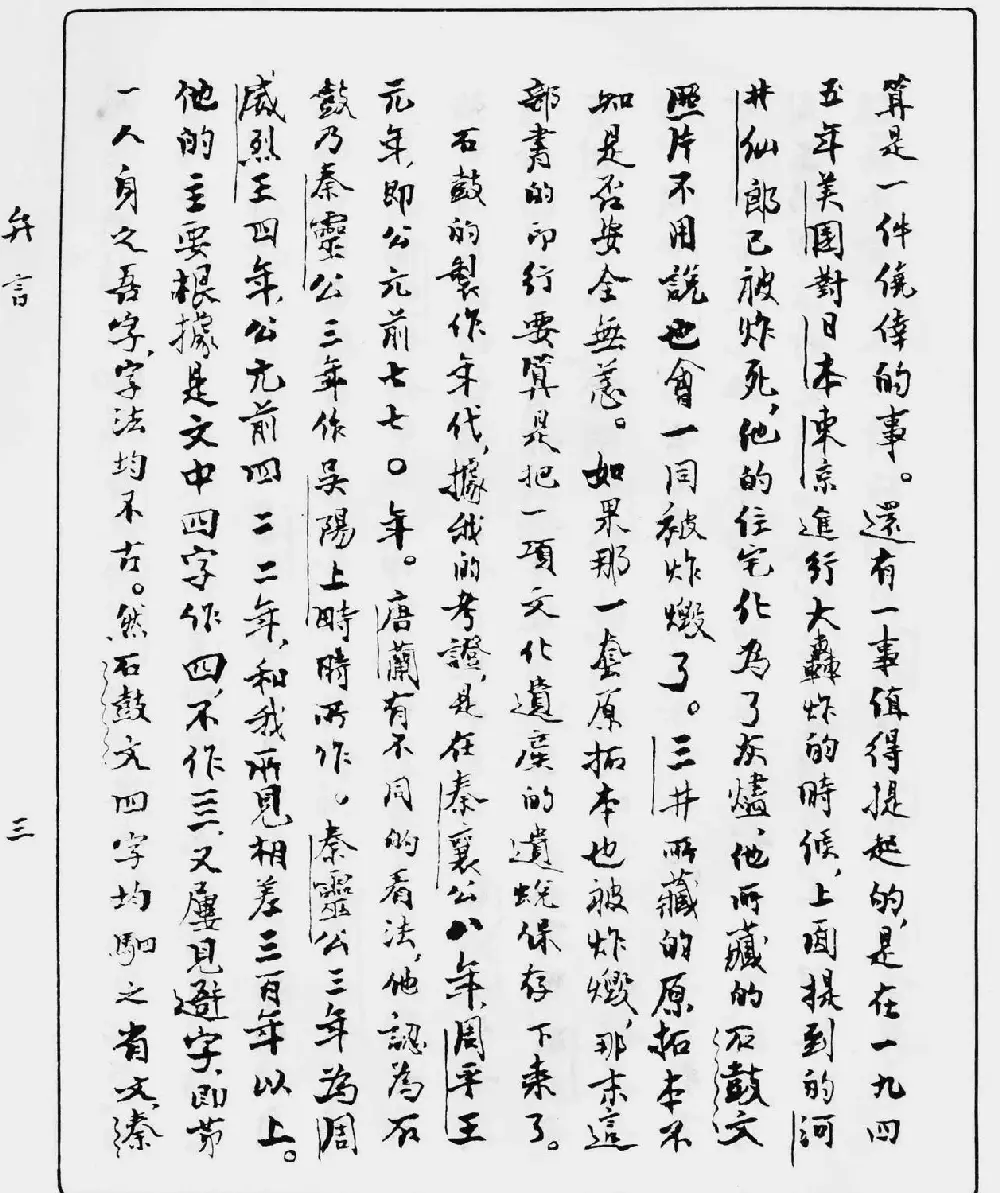 算是一件僥倖的事。還有一事值得提起的，是在一九四
五年美國對日本東京進行大轟炸的時候，上面提到的河
井仙郎已被炸死，他的住宅化為了灰燼，他所藏的石鼓文
照片不用說也會一同被炸燬了。三井所藏的原拓本不
知是否安全無恙。如果那一套原拓本也被炸燬，那末這
部書的印行要算是把一項文化遺產的遺蛻保存下來了。
石鼓的製作年代，據我的考證，是在秦襄公八年，周平王
元年，即公元前七七〇年。唐蘭有不同的看法，他認為石
鼓乃秦靈公三年作吳陽上畤時所作。秦靈公三年為周
威烈王四年，公元前四二二年，和我所見相差三百年以上。
他的主要根據是文中四字作四，不作亖，又屢見避字，即第
一人身之吾字，字法均不古。然石鼓文四字均駟之省文，秦
弁言
三